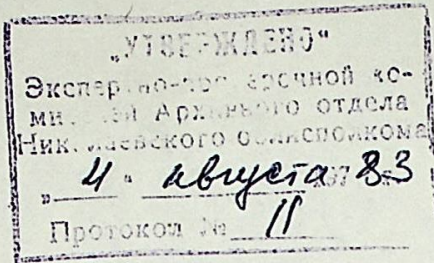 „УТВЕРЖДЕНО“
Экспертно-проверочной ко-
миссией Архивного отдела
Николаевского облисполкома
„ 4 “ августа 1983
Протокол № 11